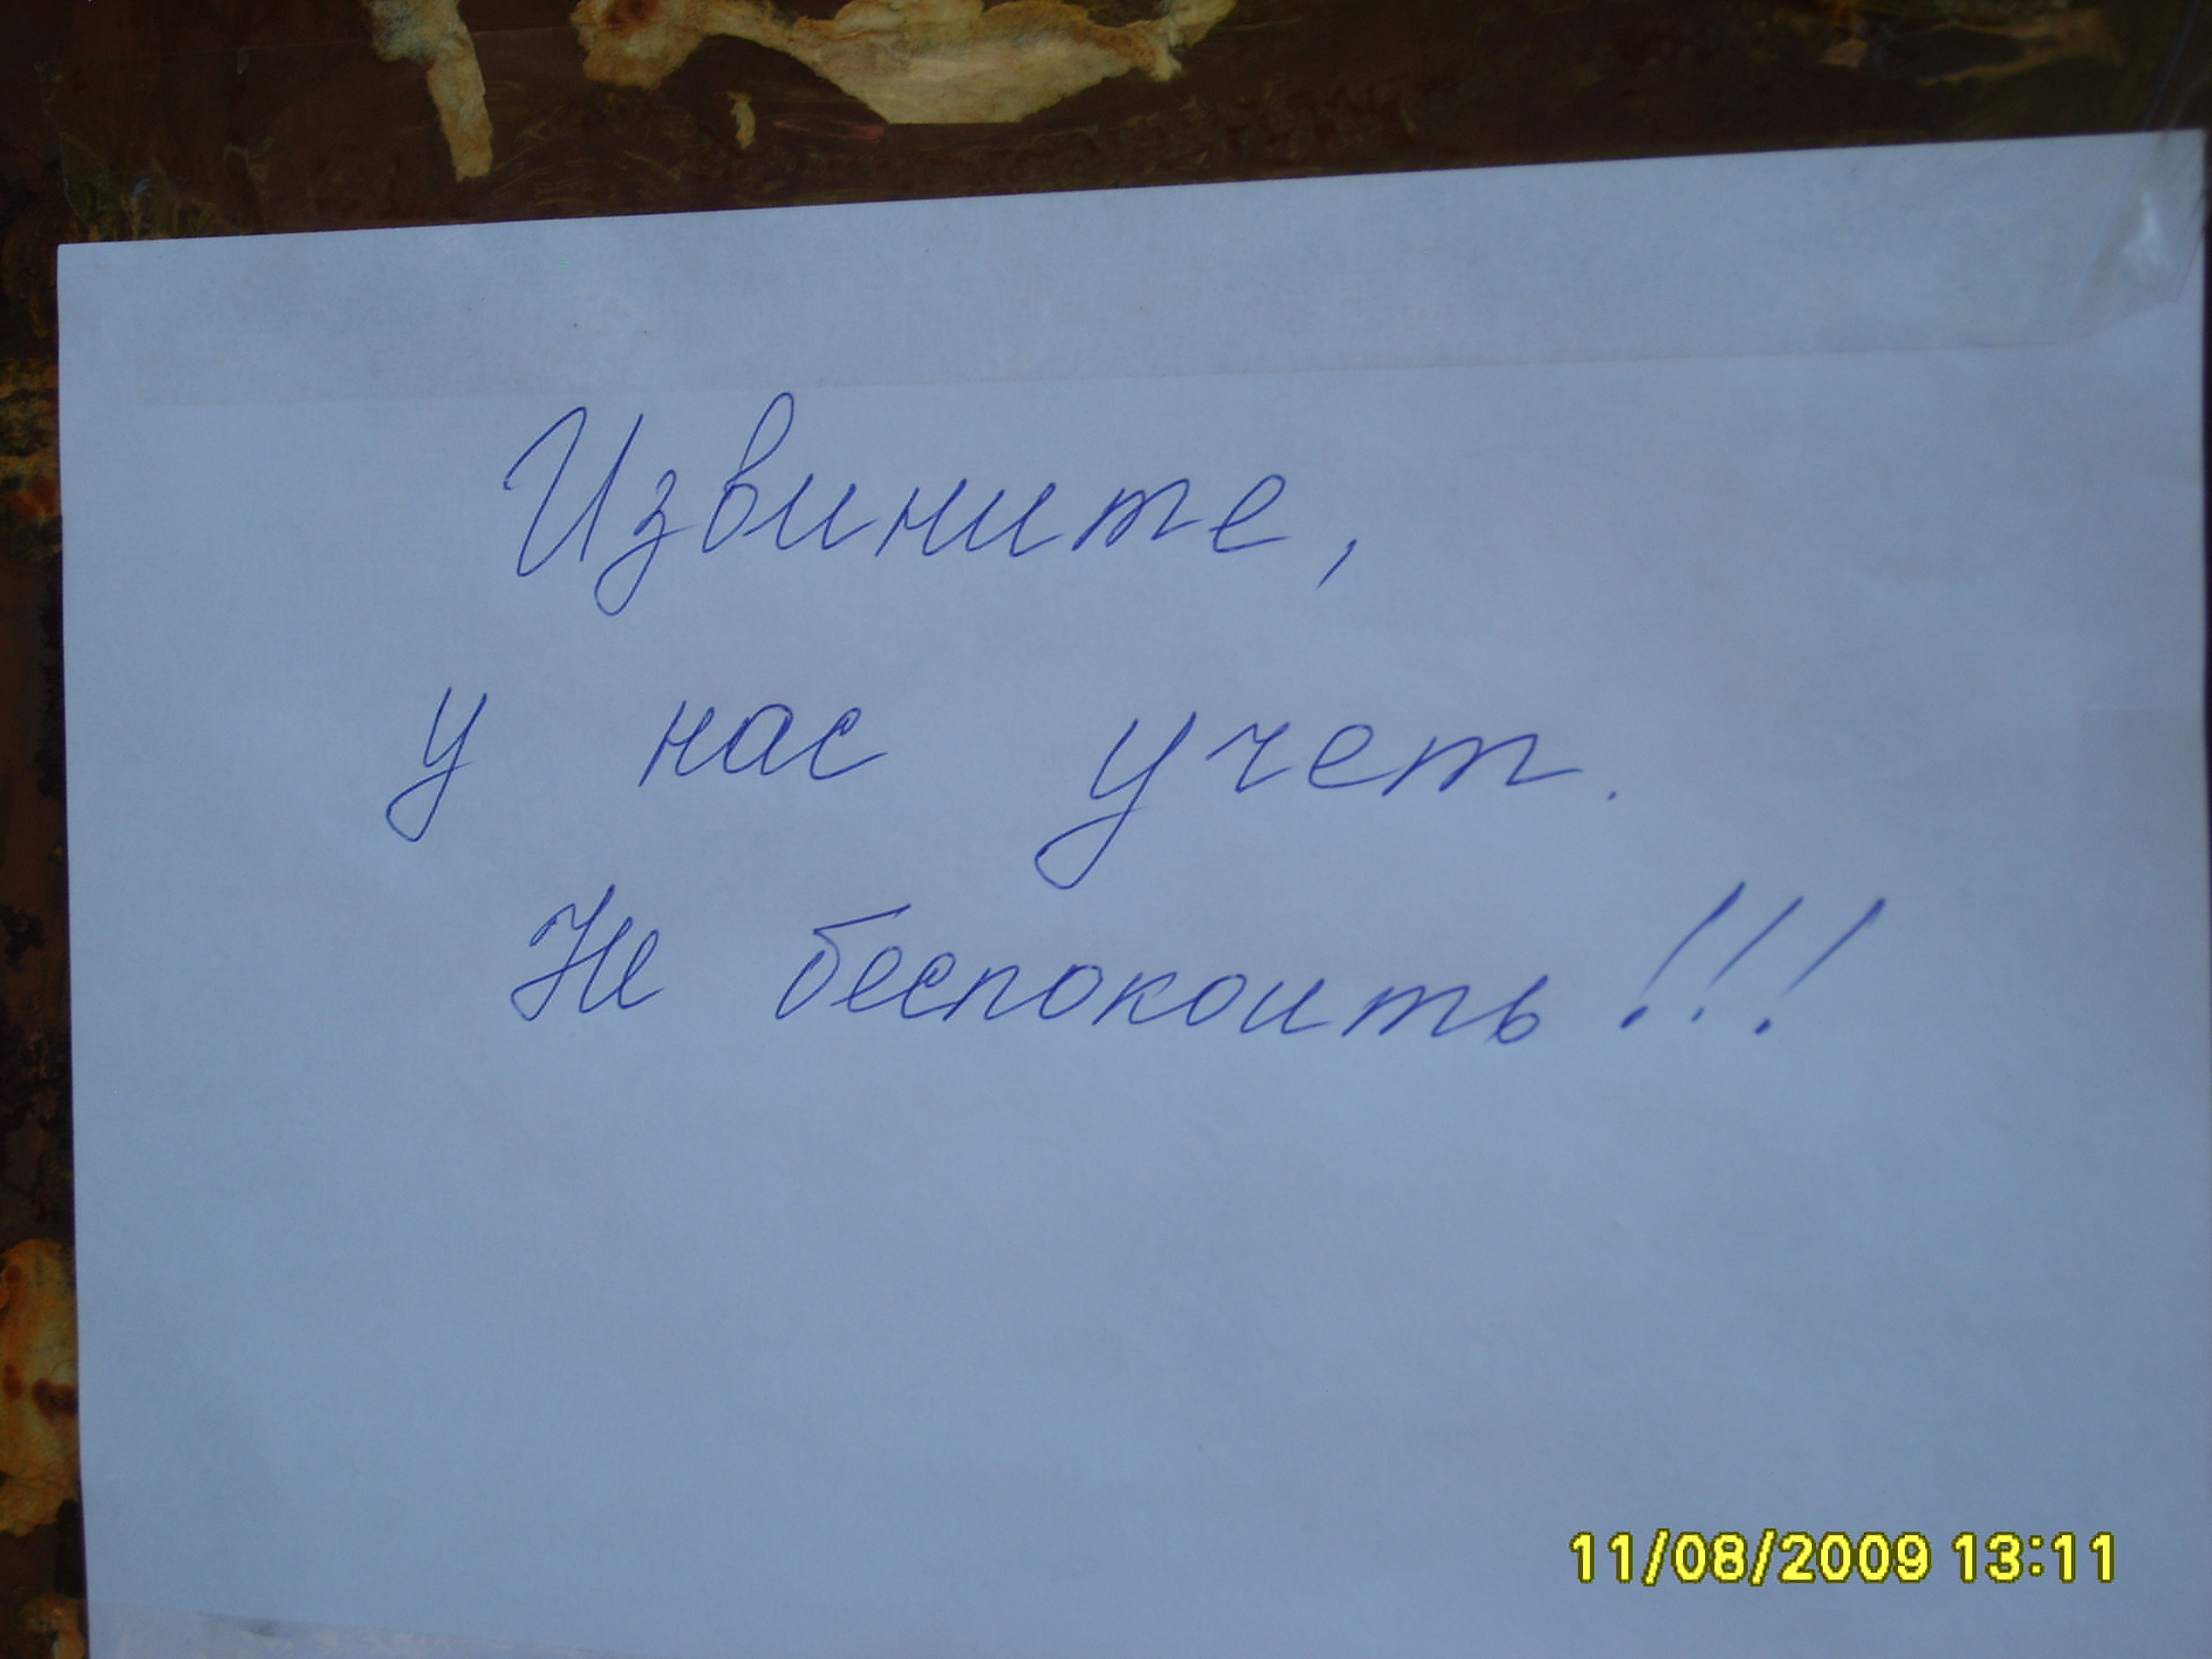 Извините,
у нас учет.
Не беспокоить!!!
11/08/2009 13:11